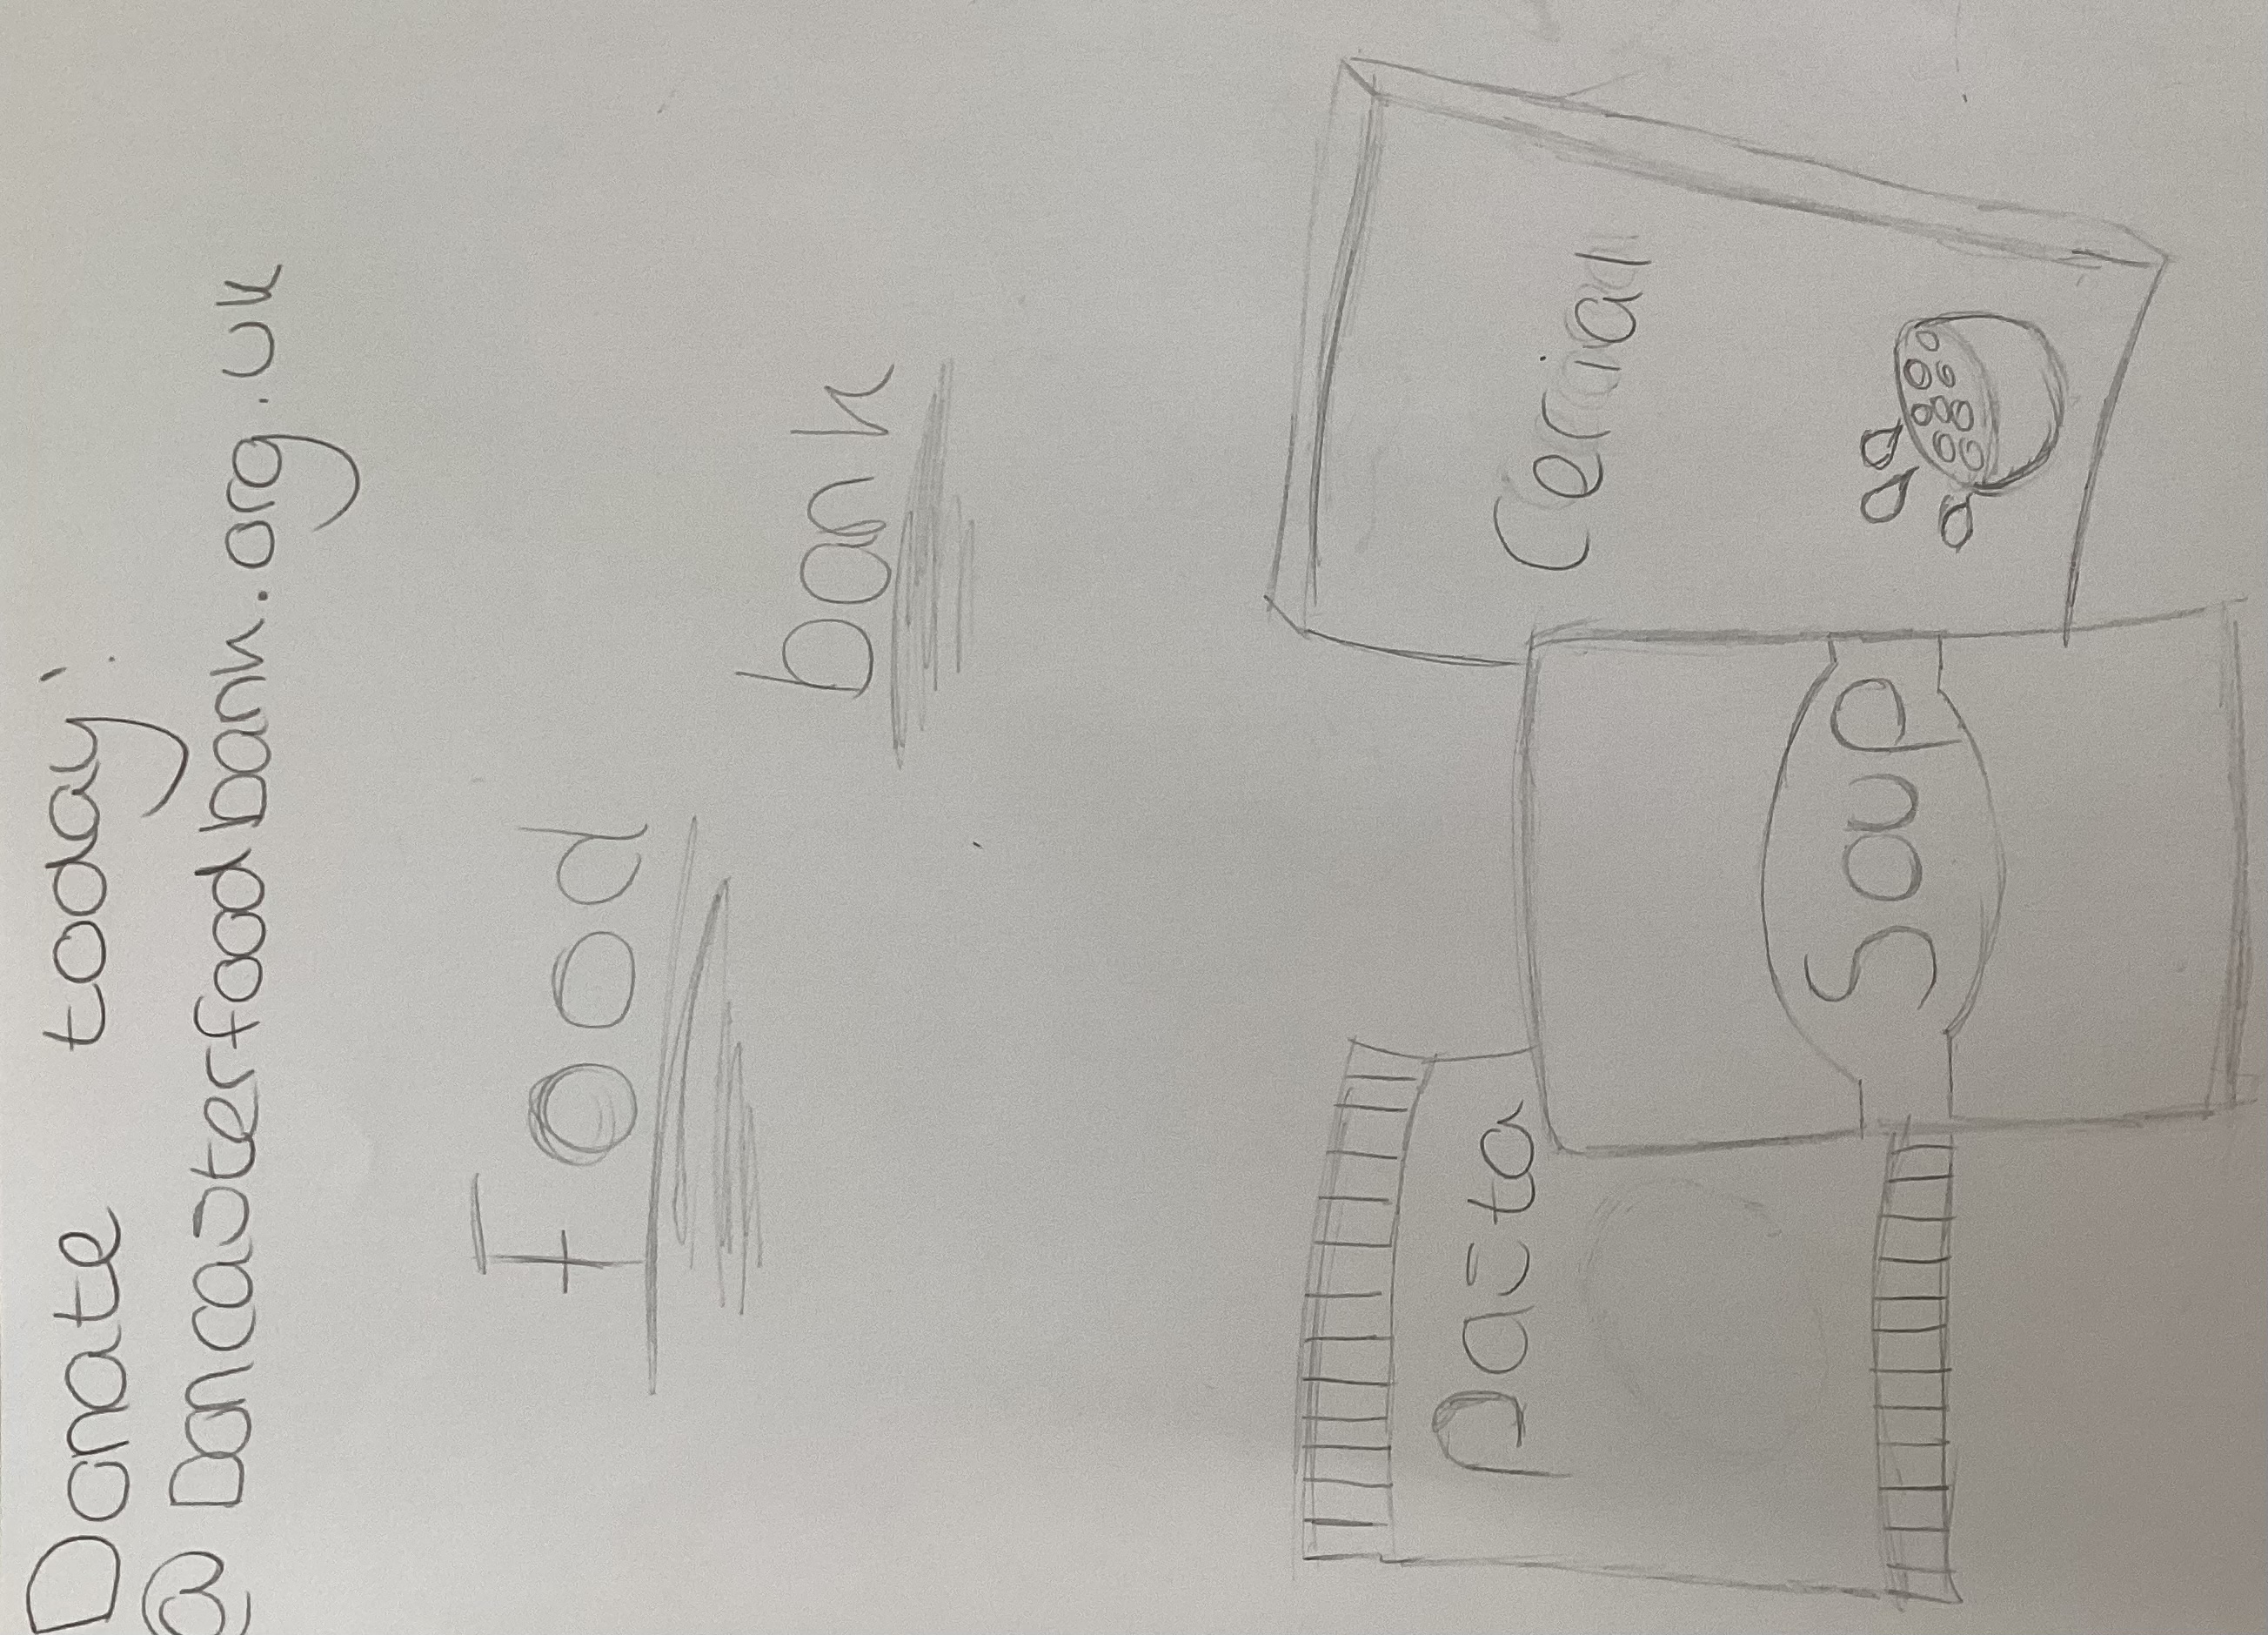 Donate today!
@ Doncasterfoodbank.org.uk
Food
bank
Pasta
Soup
Cereal